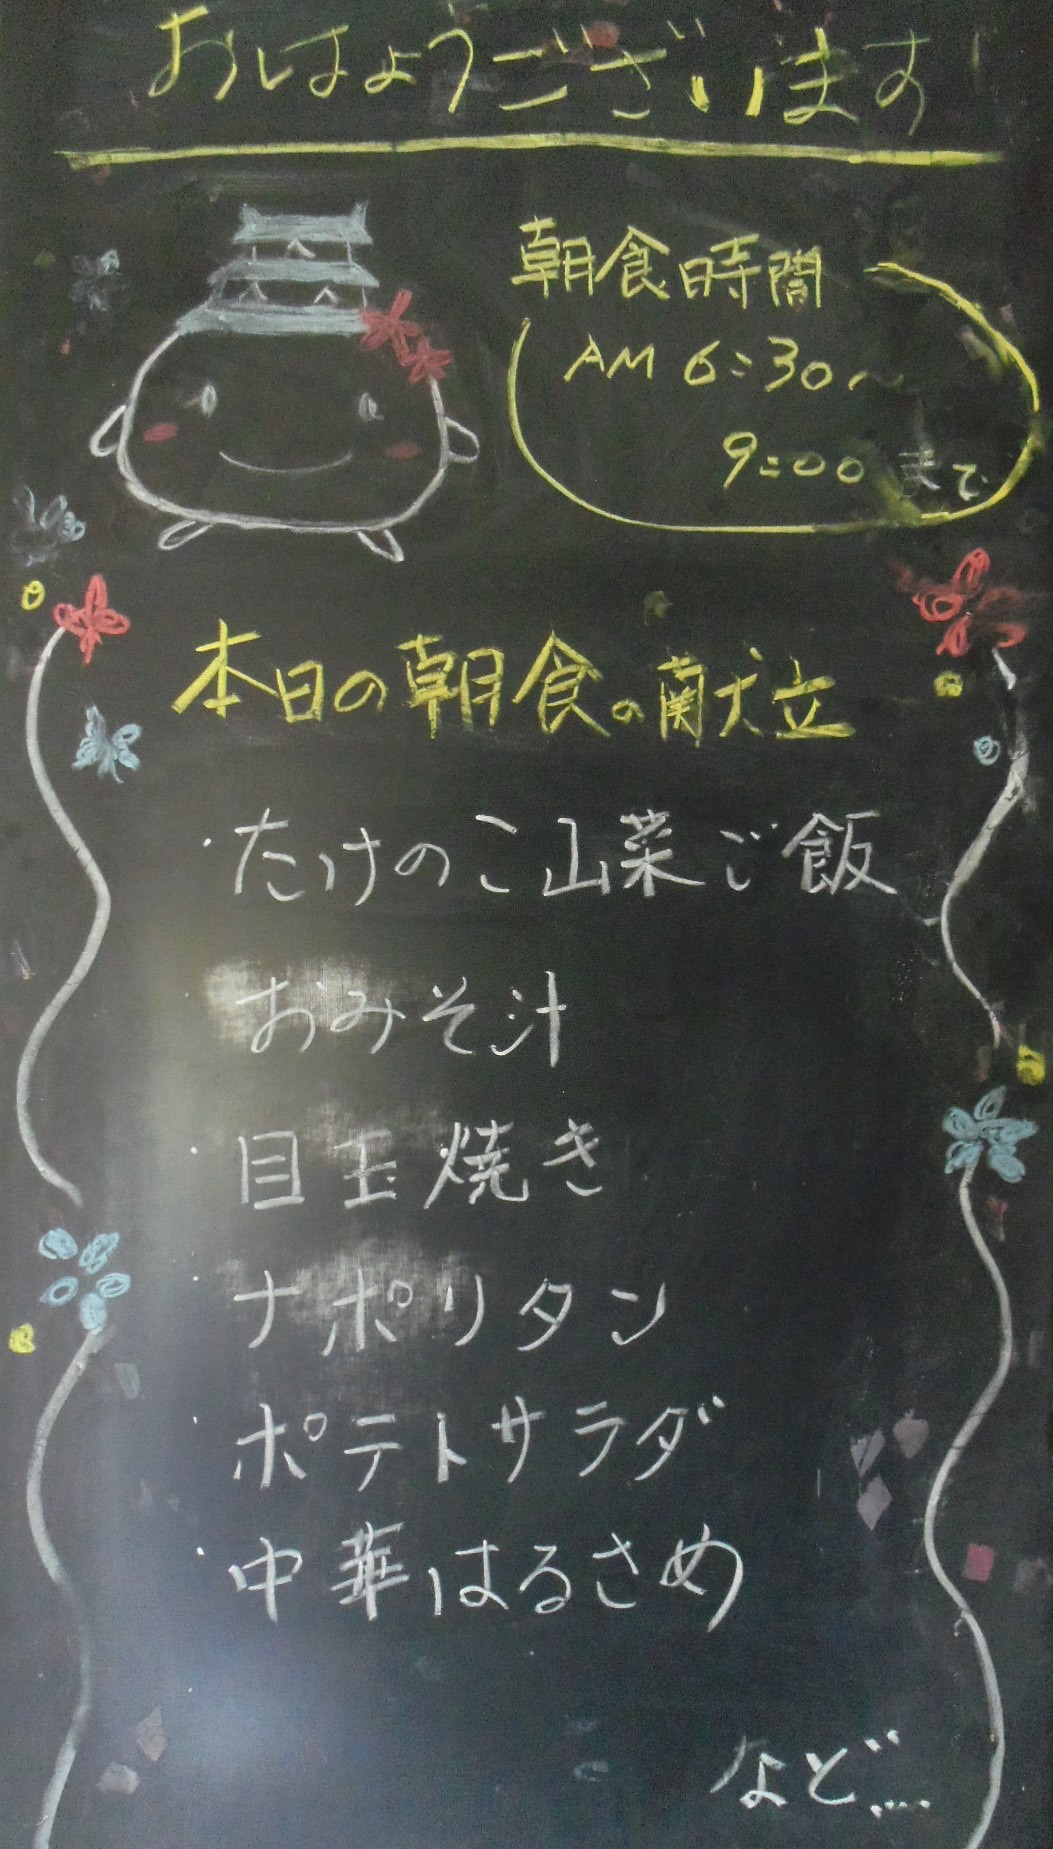 おはようございます
朝食時間
AM 6:30〜
9:00 まで
本日の朝食の献立
・たけのこ山菜ご飯
・おみそ汁
・目玉焼き
・ナポリタン
・ポテトサラダ
・中華はるさめ
など....